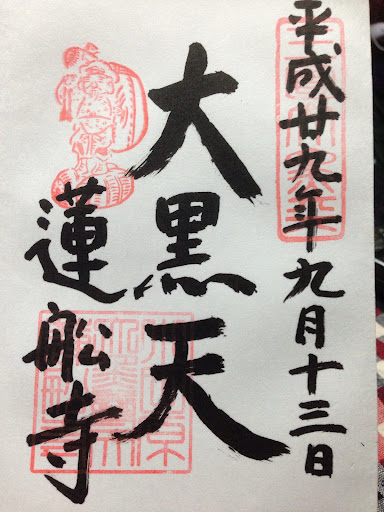 平成廿九年九月十三日
大黒天
蓮船寺